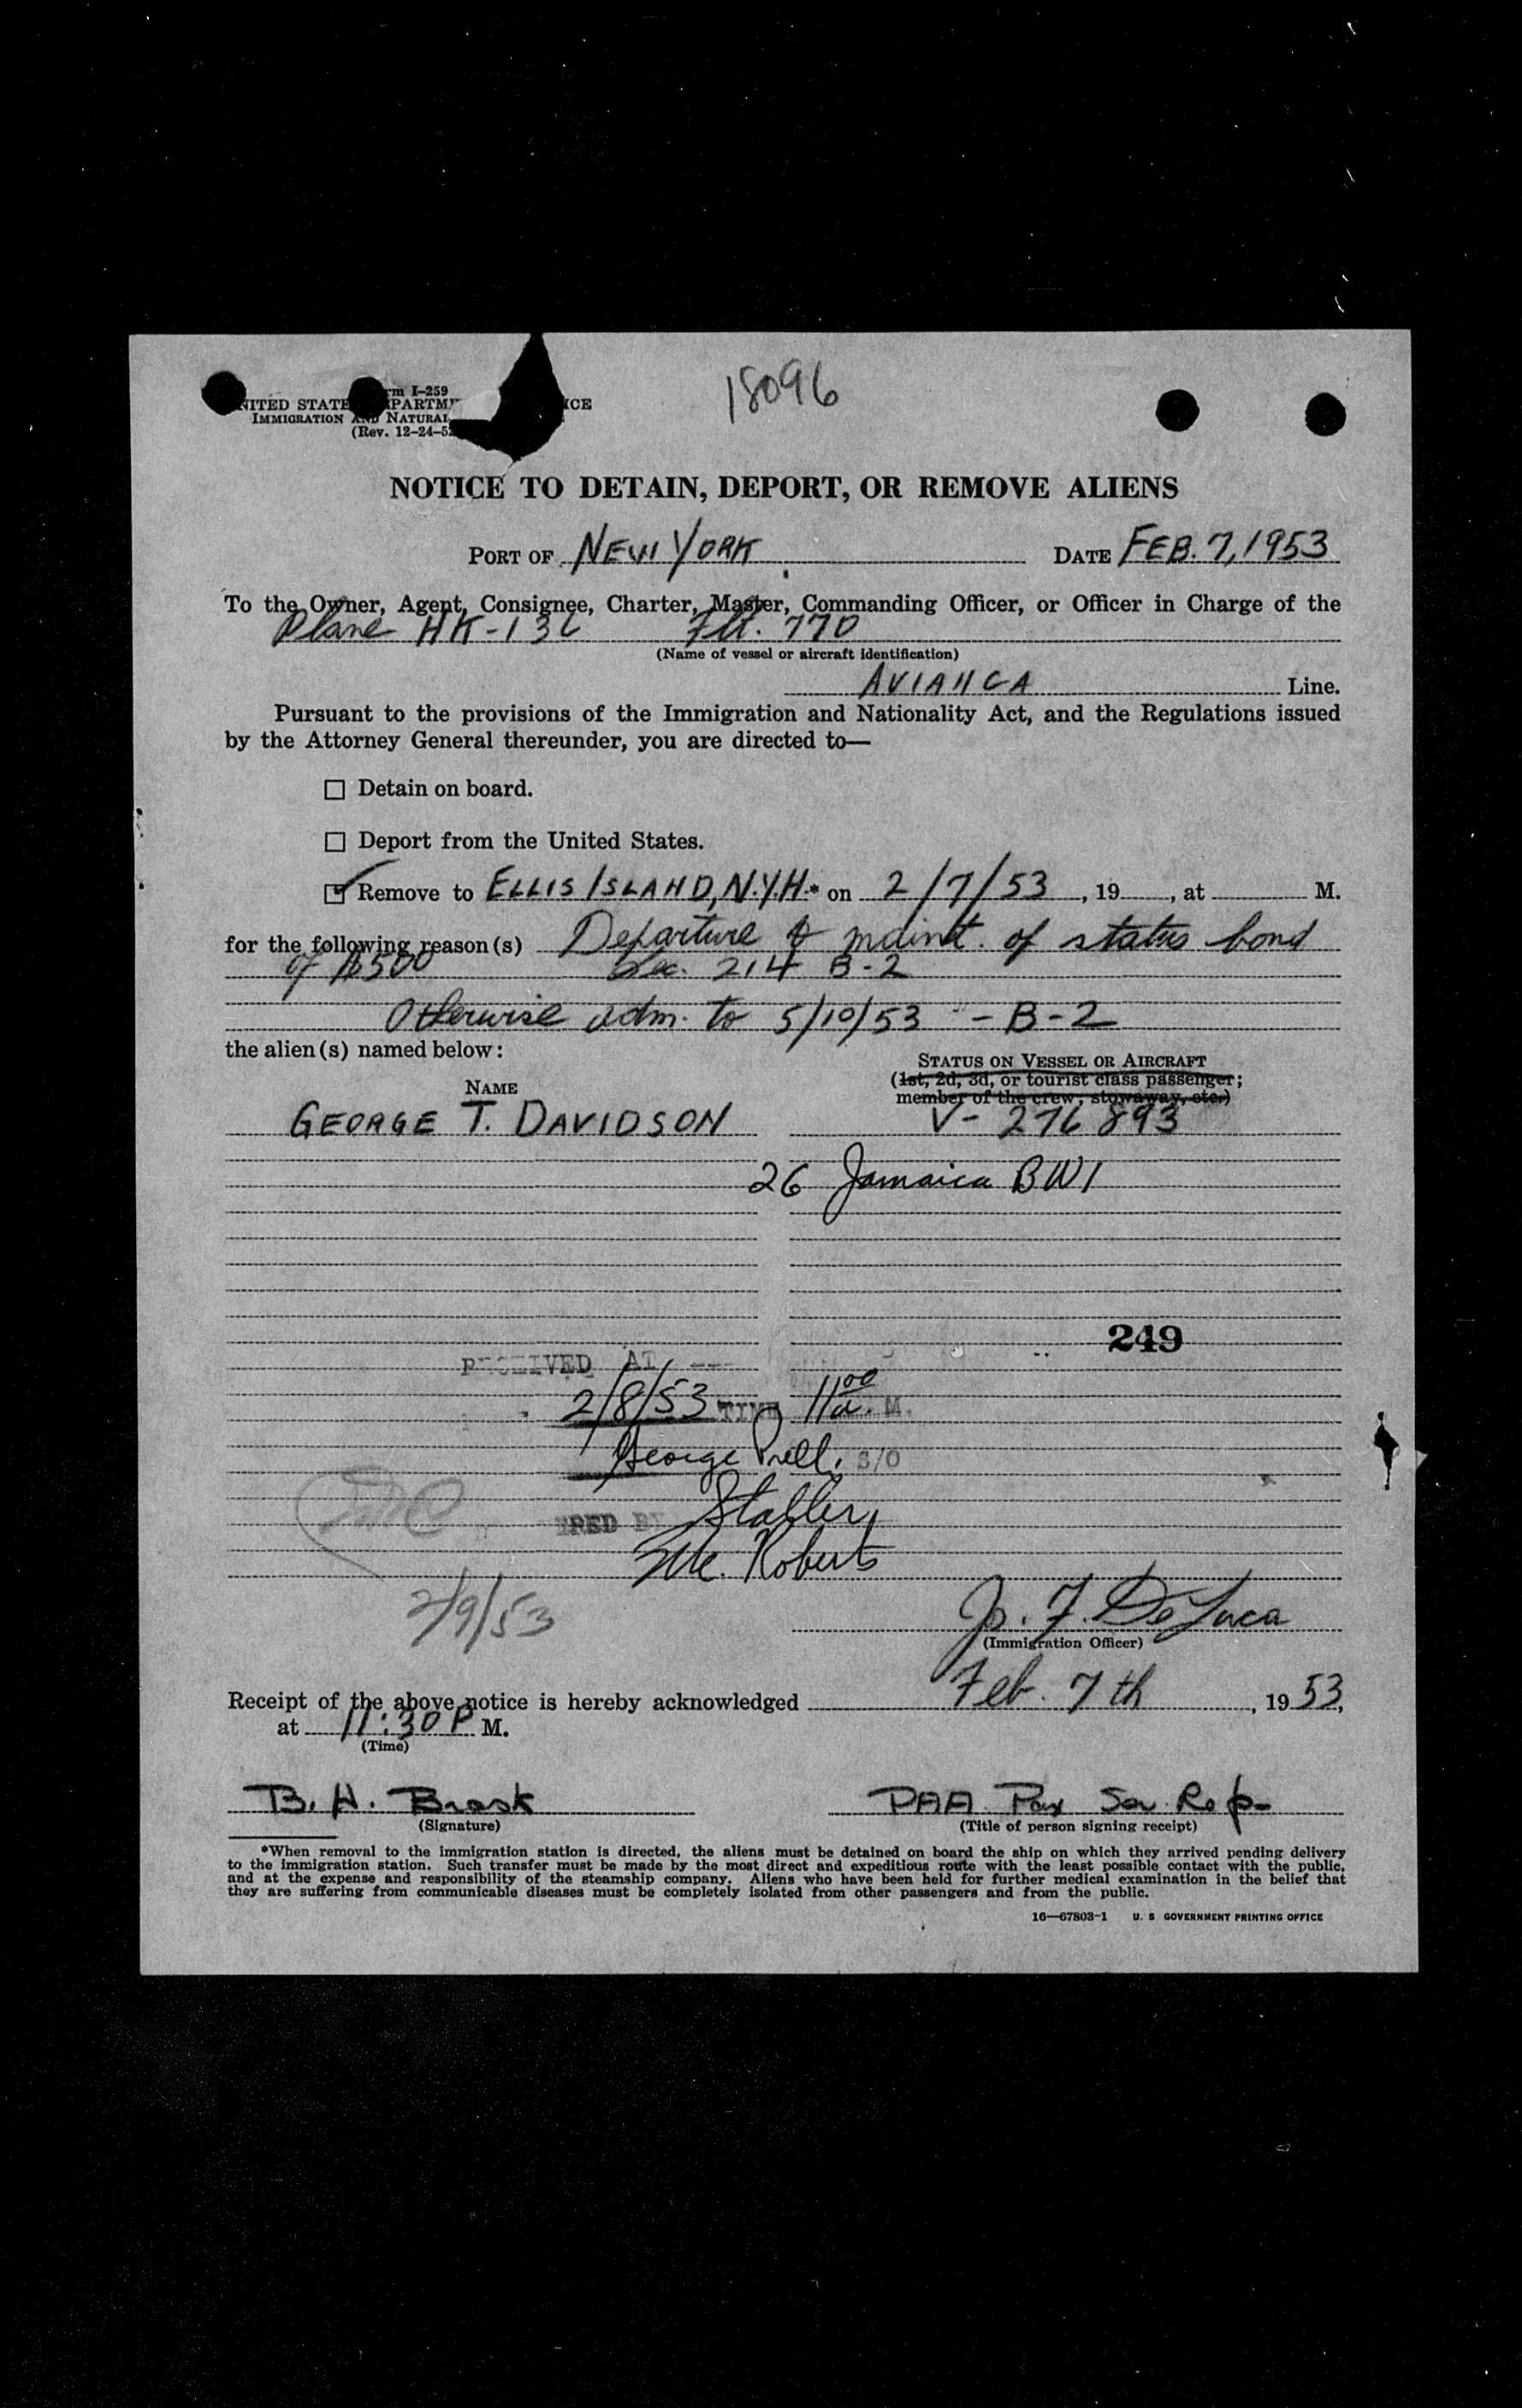 18096
rm I-259
NITED STATE PARTM ICE
IMMIGRATION AND NATURAL
(Rev. 12-24-52
NOTICE TO DETAIN, DEPORT, OR REMOVE ALIENS
PORT OF NEW YORK DATE FEB. 7, 1953
To the Owner, Agent, Consignee, Charter, Master, Commanding Officer, or Officer in Charge of the
Plane HK-136 Flt. 770
(Name of vessel or aircraft identification)
AVIANCA Line.
Pursuant to the provisions of the Immigration and Nationality Act, and the Regulations issued
by the Attorney General thereunder, you are directed to—
☐ Detain on board.
☐ Deport from the United States.
☑ Remove to ELLIS ISLAND, N.Y.H.* on 2/7/53, 19, at M.
for the following reason(s) Departure & maint. of status bond
of $500 Sec. 214 B-2
Otherwise adm. to 5/10/53 - B-2
the alien(s) named below:
STATUS ON VESSEL OR AIRCRAFT
(1st, 2d, 3d, or tourist class passenger;
member of the crew; stowaway, etc.)
NAME
GEORGE T. DAVIDSON V-276893
26 Jamaica BWI
249
RECEIVED AT
2/8/53 TIME 11 00 a. M.
George Prell. S/O
RED BY Stabler,
Mc. Roberts
2/9/53
Jo. F. DeLuca
(Immigration Officer)
Receipt of the above notice is hereby acknowledged Feb. 7th, 1953,
at 11:30 P M.
(Time)
B. H. Brask PAA Pax Sev. Rep.
(Signature) (Title of person signing receipt)
*When removal to the immigration station is directed, the aliens must be detained on board the ship on which they arrived pending delivery
to the immigration station. Such transfer must be made by the most direct and expeditious route with the least possible contact with the public,
and at the expense and responsibility of the steamship company. Aliens who have been held for further medical examination in the belief that
they are suffering from communicable diseases must be completely isolated from other passengers and from the public.
16—67803-1 U. S. GOVERNMENT PRINTING OFFICE